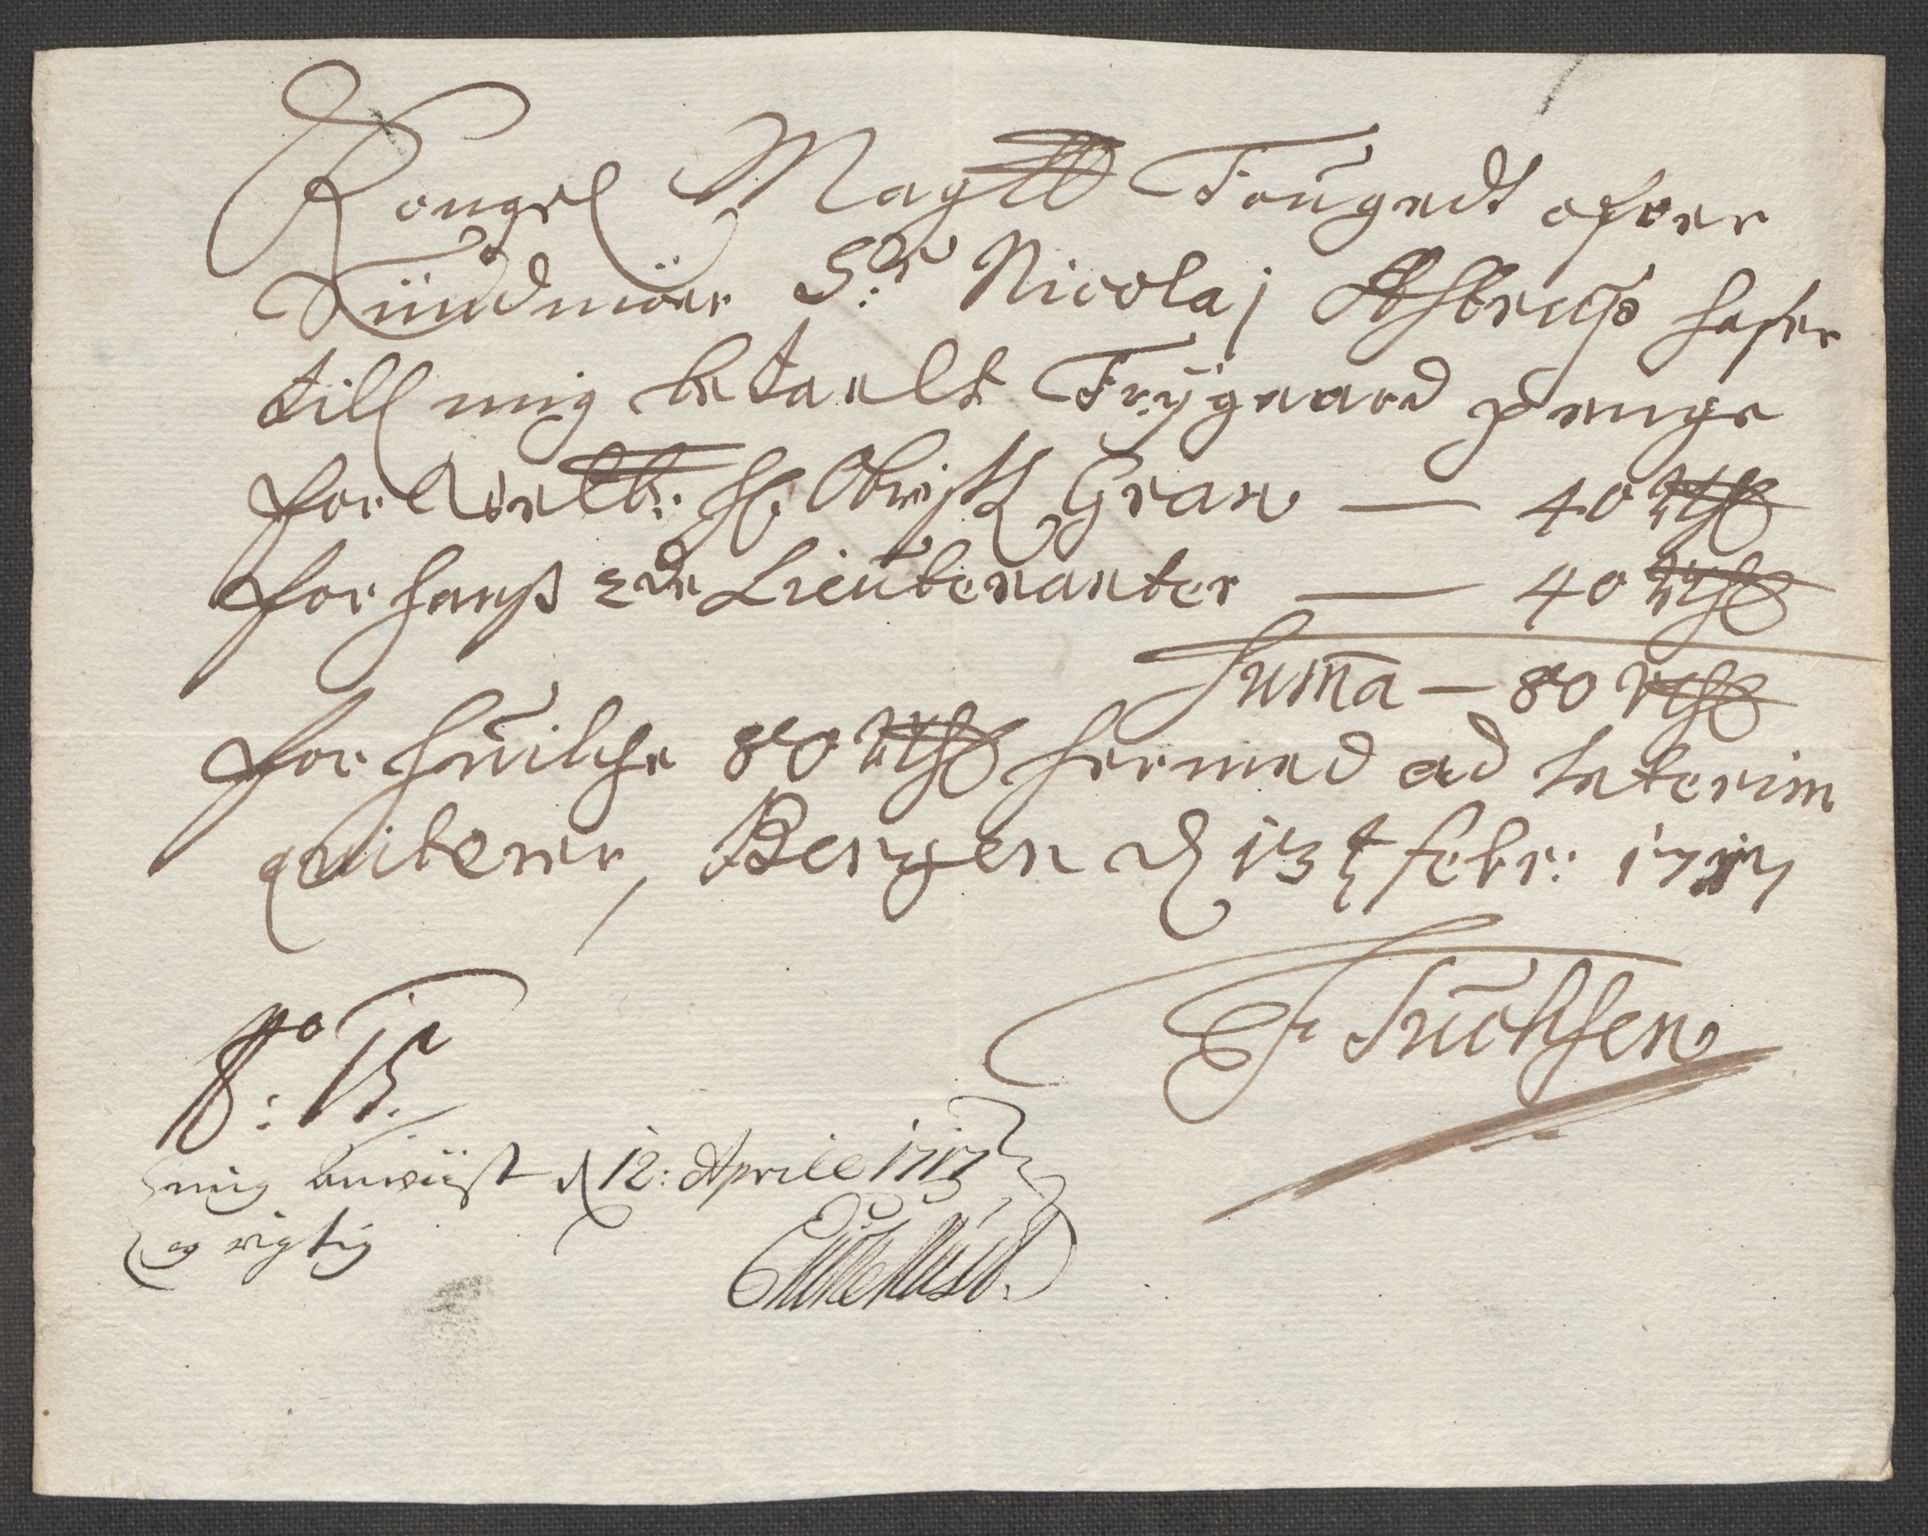 Kongel Maytts Fougedt ofver
Sundmöer Sr: Nicolaj Astrup hafer
till mig betaelt Frÿgaard penge
for Welb: H: Obrist Gran — 40 Rdr
for hanß 2de Lieutenanter — 40 Rdr
Suma — 80 Rdr
for huilche 80 Rdr hermed ad Interim
qviterer, Bergen d 13t febr: 1717
F Tuchsen
No: 15.
mig anviist d 12: Aprill 1717
og rigtig